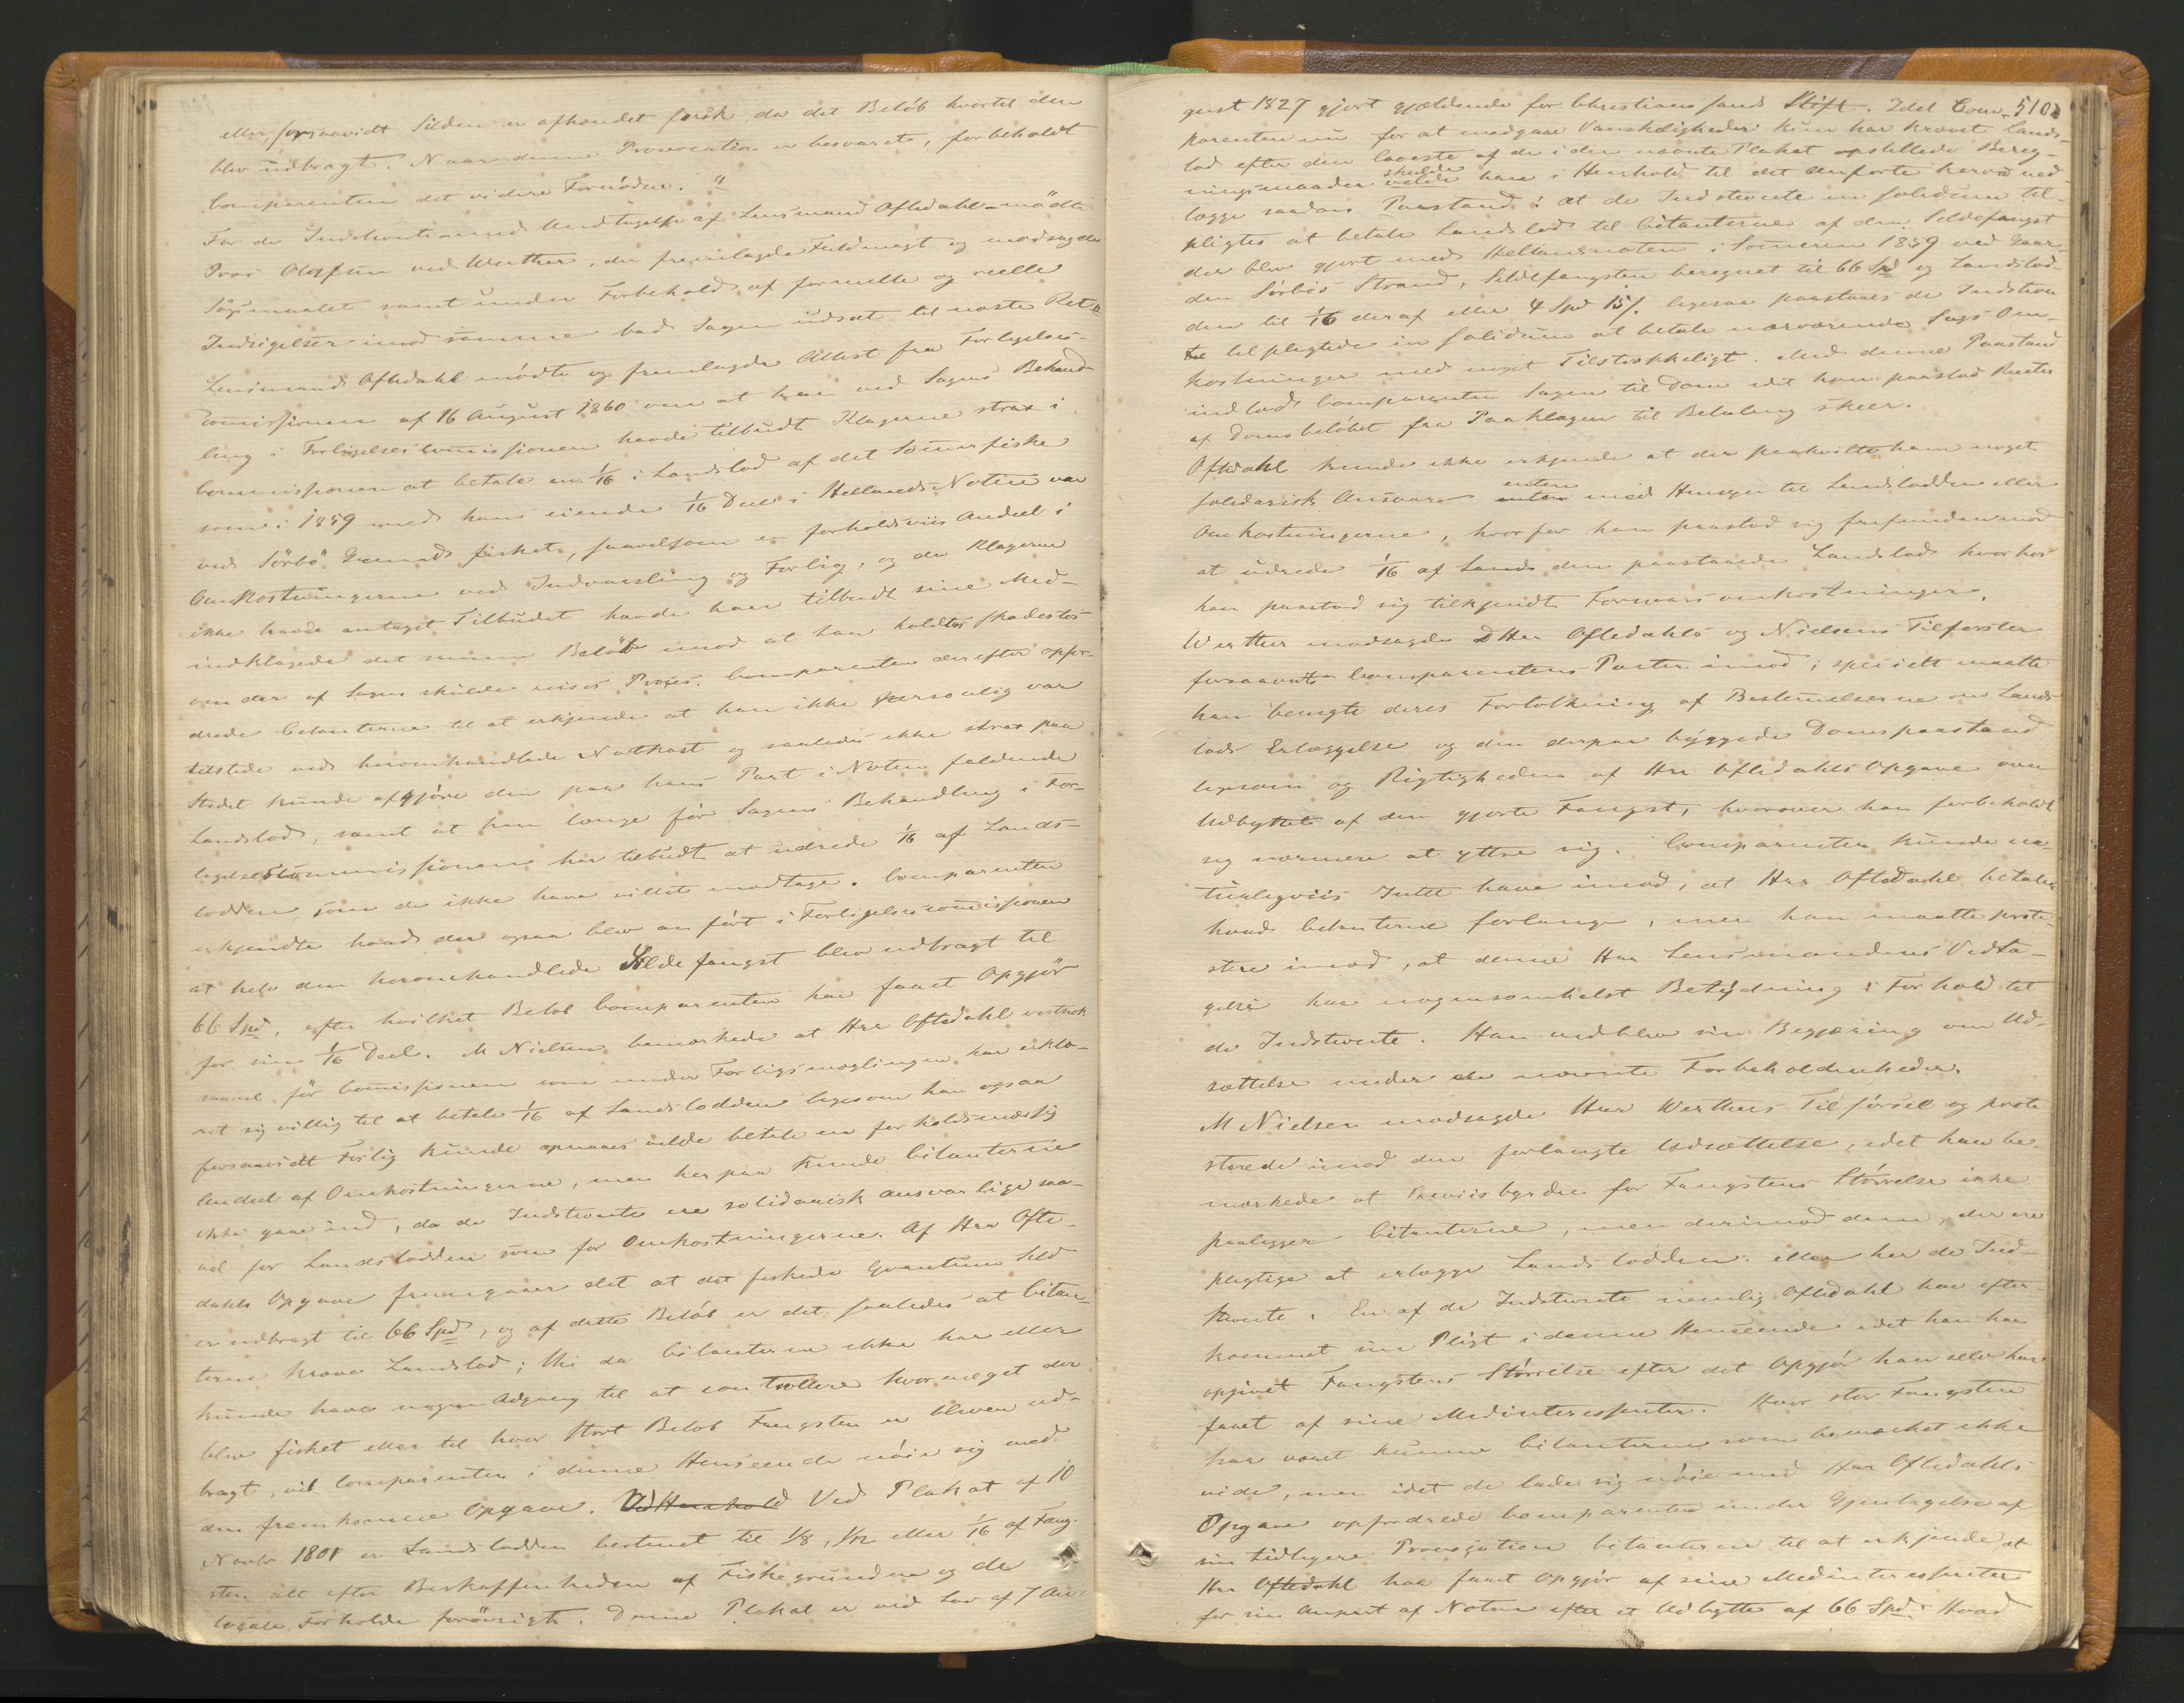 eller forsaavidt Silden er afhændet fersk da det Beløb hvortil den
blev udbragt. Naar denne Provocation er besvaret, forbeholdt
Comparenten det videre Fornødne."
For de Indstevnte med Undtagelse af Lensmand Oftedahl mødte
ved Werther, der fremlagde Fuldmagt og modsagde
Søgsmaalet samt under Forbehold af formelle og reelle
Indsigelser imod samme bad Sagen udsat til næste Ret.
Lensmand Oftedahl mødte og fremlagde Attest fra Forligelses-
Comissionen af 16 August 1860 om at han ved Sagens Behand-
ling i Forligelsescomissionen havde tilbudt Klagerne strax i
Commissionen at betale en 1/16 i Landslod af det Somerfiske
som i 1859 med hans eiende 1/16 Deel i Hellands-Noten var
ved Sörbö Grund fisket, saavelsom en forholdsviis Andeel i
Omkostningerne ved Indvarsling og Forlig, og da Klagerne
ikke havde antaget Tilbudet havde han tilbudt sine Med-
indklagede det samme Beløb imod at han holdtes skadesløs
om der af Sagen skulde reises Proces. Comparenten derefter opfor-
drede Citanterne til at erkjende at han ikke personlig var
tilstede ved heromhandlede Notkast og saaledes ikke strax paa
Stedet kunde afgjøre den paa hans Part i Noten faldende
Landslod, samt at han længe før Sagens Behandling i For-
ligelsescommissionen har tilbudt at udrede 1/16 af Lands-
lodden, som de ikke have villet modtage. Comparenten
erkjendte hvad der ogsaa blev anført i Forligelsescomissionen
at hele den heromhandlede Sildefangst blev udbragt til
66 Spd, efter hvilket Beløb Comparenten har faaet Opgjør
for sin 1/16 Deel. M Nielsen bemærkede at Hr Oftedahl vistnok
saavel før Comissionen som under Forligsmæglingen har erklæ-
ret sig villig til at betale 1/16 af Landslodden ligesom han ogsaa
forsaavidt Forlig kunde opnaaes vilde betale en forholdsmæssig
Andeel af Omkostningerne, men herpaa kunde Citanterne
ikke gaae ind, da de Indstevnte ere solidarisk ansvarlige saa-
vel for Landslodden som for Omkostningerne. Af Hr Ofte-
dahls Opgave fremgaaer det at det fiskede Qvantum Sild
er udbragt til 66 Spd, og af dette Beløb er det saaledes at Citan-
terne kræve Landslod; thi da Citanterne ikke har eller
kunde have nogen Adgang til at controllere hvormeget der
blev fisket eller til hvor Stort Beløb Fangsten er bleven ud-
bragt, vil Comparenten i denne Henseende nøie sig med
den fremkomne Opgave. Ved Henhold Ved Plakat af 10
Novbr 1801 er Landslodden bestemt til 1/8, 1/12 eller 1/16 af Fang-
sten alt efter Beskaffenheden af Fiskegrundene og de
locale Forholde forøvrigt. Denne Plakat er ved Lov af 7 Au-
510
gust 1827 gjort gjældende for Christiansands Stift. Idet Com-
parenten nu for at undgaae Vanskeligheder kun har krævet Lands-
lod efter den laveste af de i den nævnte Plakat opstillede Bereg-
ningsmaader skulde vilde han i Henhold til det anførte herved ned-
lægge saadan Paastand: at de Indstevnte in solidum til-
pligtes at betale Landslod til Citanterne af den Sildefangst
der blev gjort med Hellandsnoten i Sommeren 1859 ved Gaar-
den Sörbös Strand, Sildefangsten beregnet til 66 Spd og Landslod-
den til 1/16 deraf eller 4 Spd 15/. ligesaa paastaaes de Indstevn-
te tilpligtede in solidum at betale nærværende Sags Om-
kostninger med noget Tilstrækkeligt. Med denne Paastand
indlod Comparenten Sagen til Dom idet han paastod Renter
af Domsbeløbet fra Paaklagen til Betaling skeer.
Oftedahl kunde ikke erkjende at der paahvilte ham noget
solidarisk Ansvar enten enten med Hensyn til Landslodden eller
Omkostningerne, hvorfor han paastod sig frifunden mod
at udrede 1/16 af Lands den paastaaede Landslod hvorhos
han paastod sig tilkjendt Forsvarsomkostninger.
Werther modsagde DHrr Oftedahls og Nielsens Tilførsler
forsaavidt Comparentens Parter imod; specielt maatte
han benegte deres Fortolkning af Bestemelserne om Lands-
lods Erlæggelse og den derpaa byggede Domspaastand
ligesom og Rigtigheden af Hr Oftedahls Opgave over
Udbyttet af den gjorte Fangst, hvorover han forbeholdt
sig nærmere at yttre sig. Comparenten kunde na-
turligviis Intet have imod, at Hr Oftedahl betaler
hvad Citanterne forlange, men han maatte prote-
stere imod, at denne Hr Lensmandens Vedta-
gelse har nogensomhelst Betydning i Forhold til
de Indstevnte. Han vedblev sin Begjæring om Ud-
sættelse under de nævnte Forbeholdenheder.
M Nielsen modsagde Herr Werthers Tilførsel og prote-
sterede imod den forlangte Udsættelse, idet han be-
mærkede at Beviisbyrden for Fangstens Størrelse ikke
paaligger Citanterne, men derimod dem, der ere
pligtige at erlægge Landslodden eller her de Ind-
stevnte. En af de Indstevnte nemlig Oftedahl har efter-
kommet sin Pligt i denne Henseende idet han har
opgivet Fangstens Størrelse efter det Opgjør han selv har
faaet af sine Medinteressenter. Hvor stor Fangsten
har været kunne Citanterne som bemærket ikke
vide, men idet de lade sig nøie med Hr Oftedahls
Opgave opfordrede Comparenten under Gjentagelse af
sin tidligere Provocation Citanterne til at erkjende at
Hr Oftedahl har faaet Opgjør af sine Medinteressenter
for sin Anpart af Noten efter et Udbytte af 66 Spd. Hvad